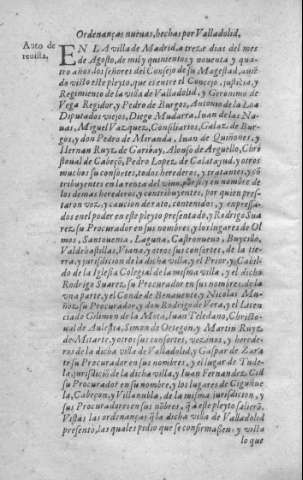 Ordenanças nueuas, hechas por Valladolid.
Auto de
reuista.
EN LA villa de Madrid, a treze dias del mes
de Agosto, de mil y quinientos y nouenta y qua-
tro años, los señores del Consejo de su Magestad, auiẽ-
do visto este pleyto, que es entre el Conçejo, justicia, y
Regimiento de la villa de Valladolid, y Geronimo de
Vega Regidor, y Pedro de Burgos, Antonio de la Loa
Diputados viejos, Diego Mudarra, Iuan de las Na-
uas, Miguel Vazquez, Consiliarios, Galaz de Bur-
gos, y don Pedro de Miranda, Iuan de Quiñones, y
Hernan Ruyz de Garibay, Alonso de Arguello, Chri-
stoual de Cabeçõ, Pedro Lopez, de Calatayud, y otros
muchos sus consortes, todos herederos, y tratantes, y cõ-
tribuyentes en la renta del vino, por si, y en nombre de
los demas herederos, y contribuyentes, por quien pres-
taron voz, y caucion de rato, contenidos, y expressa-
dos en el poder en este pleyto presentado, y Rodrigo Sua
rez, su Procurador en sus nombres, y los lugares de Ol
mos, Santouenia, Laguna, Castronueuo, Muzien,
Valdestillas, Viana, y otros sus consortes, de la tier-
ra, y jurisdicion de la dicha villa, y el Prior, y Cabil-
do de la Iglesia Colegial de la misma villa, y el dicho
Rodrigo Suarez, su Procurador en sus nombres, de la
vna parte, y el Conde de Benauente, y Nicolas Mu-
ñoz, su Procurador, y don Rodrigo de Vera, y el Licen
ciado Gilimon de la Mota, Iuan Toledano, Christo-
ual de Aulestia, Simon de Ortegon, y Martin Ruyz
de Mitarte, y otros sus consortes, vezinos, y herede-
ros de la dicha villa de Valladolid, y Gaspar de Zara
te su Procurador en sus nombres, y el lugar de Tude-
la, jurisdiciõ de la dicha villa, y Iuan Fernandez, Cid
su Procurador en su nombre, y los lugares de Ciguñue
la, Cabeçon, y Villanubla, de la misma jurisdicion, y
sus Procuradores en sus nõbres, q̃ a este pleyto salierõ.
Vistas las ordenanças q̃ la dicha villa de Valladolid
presento, las quales pidio que se confirmassen: y visto
lo que